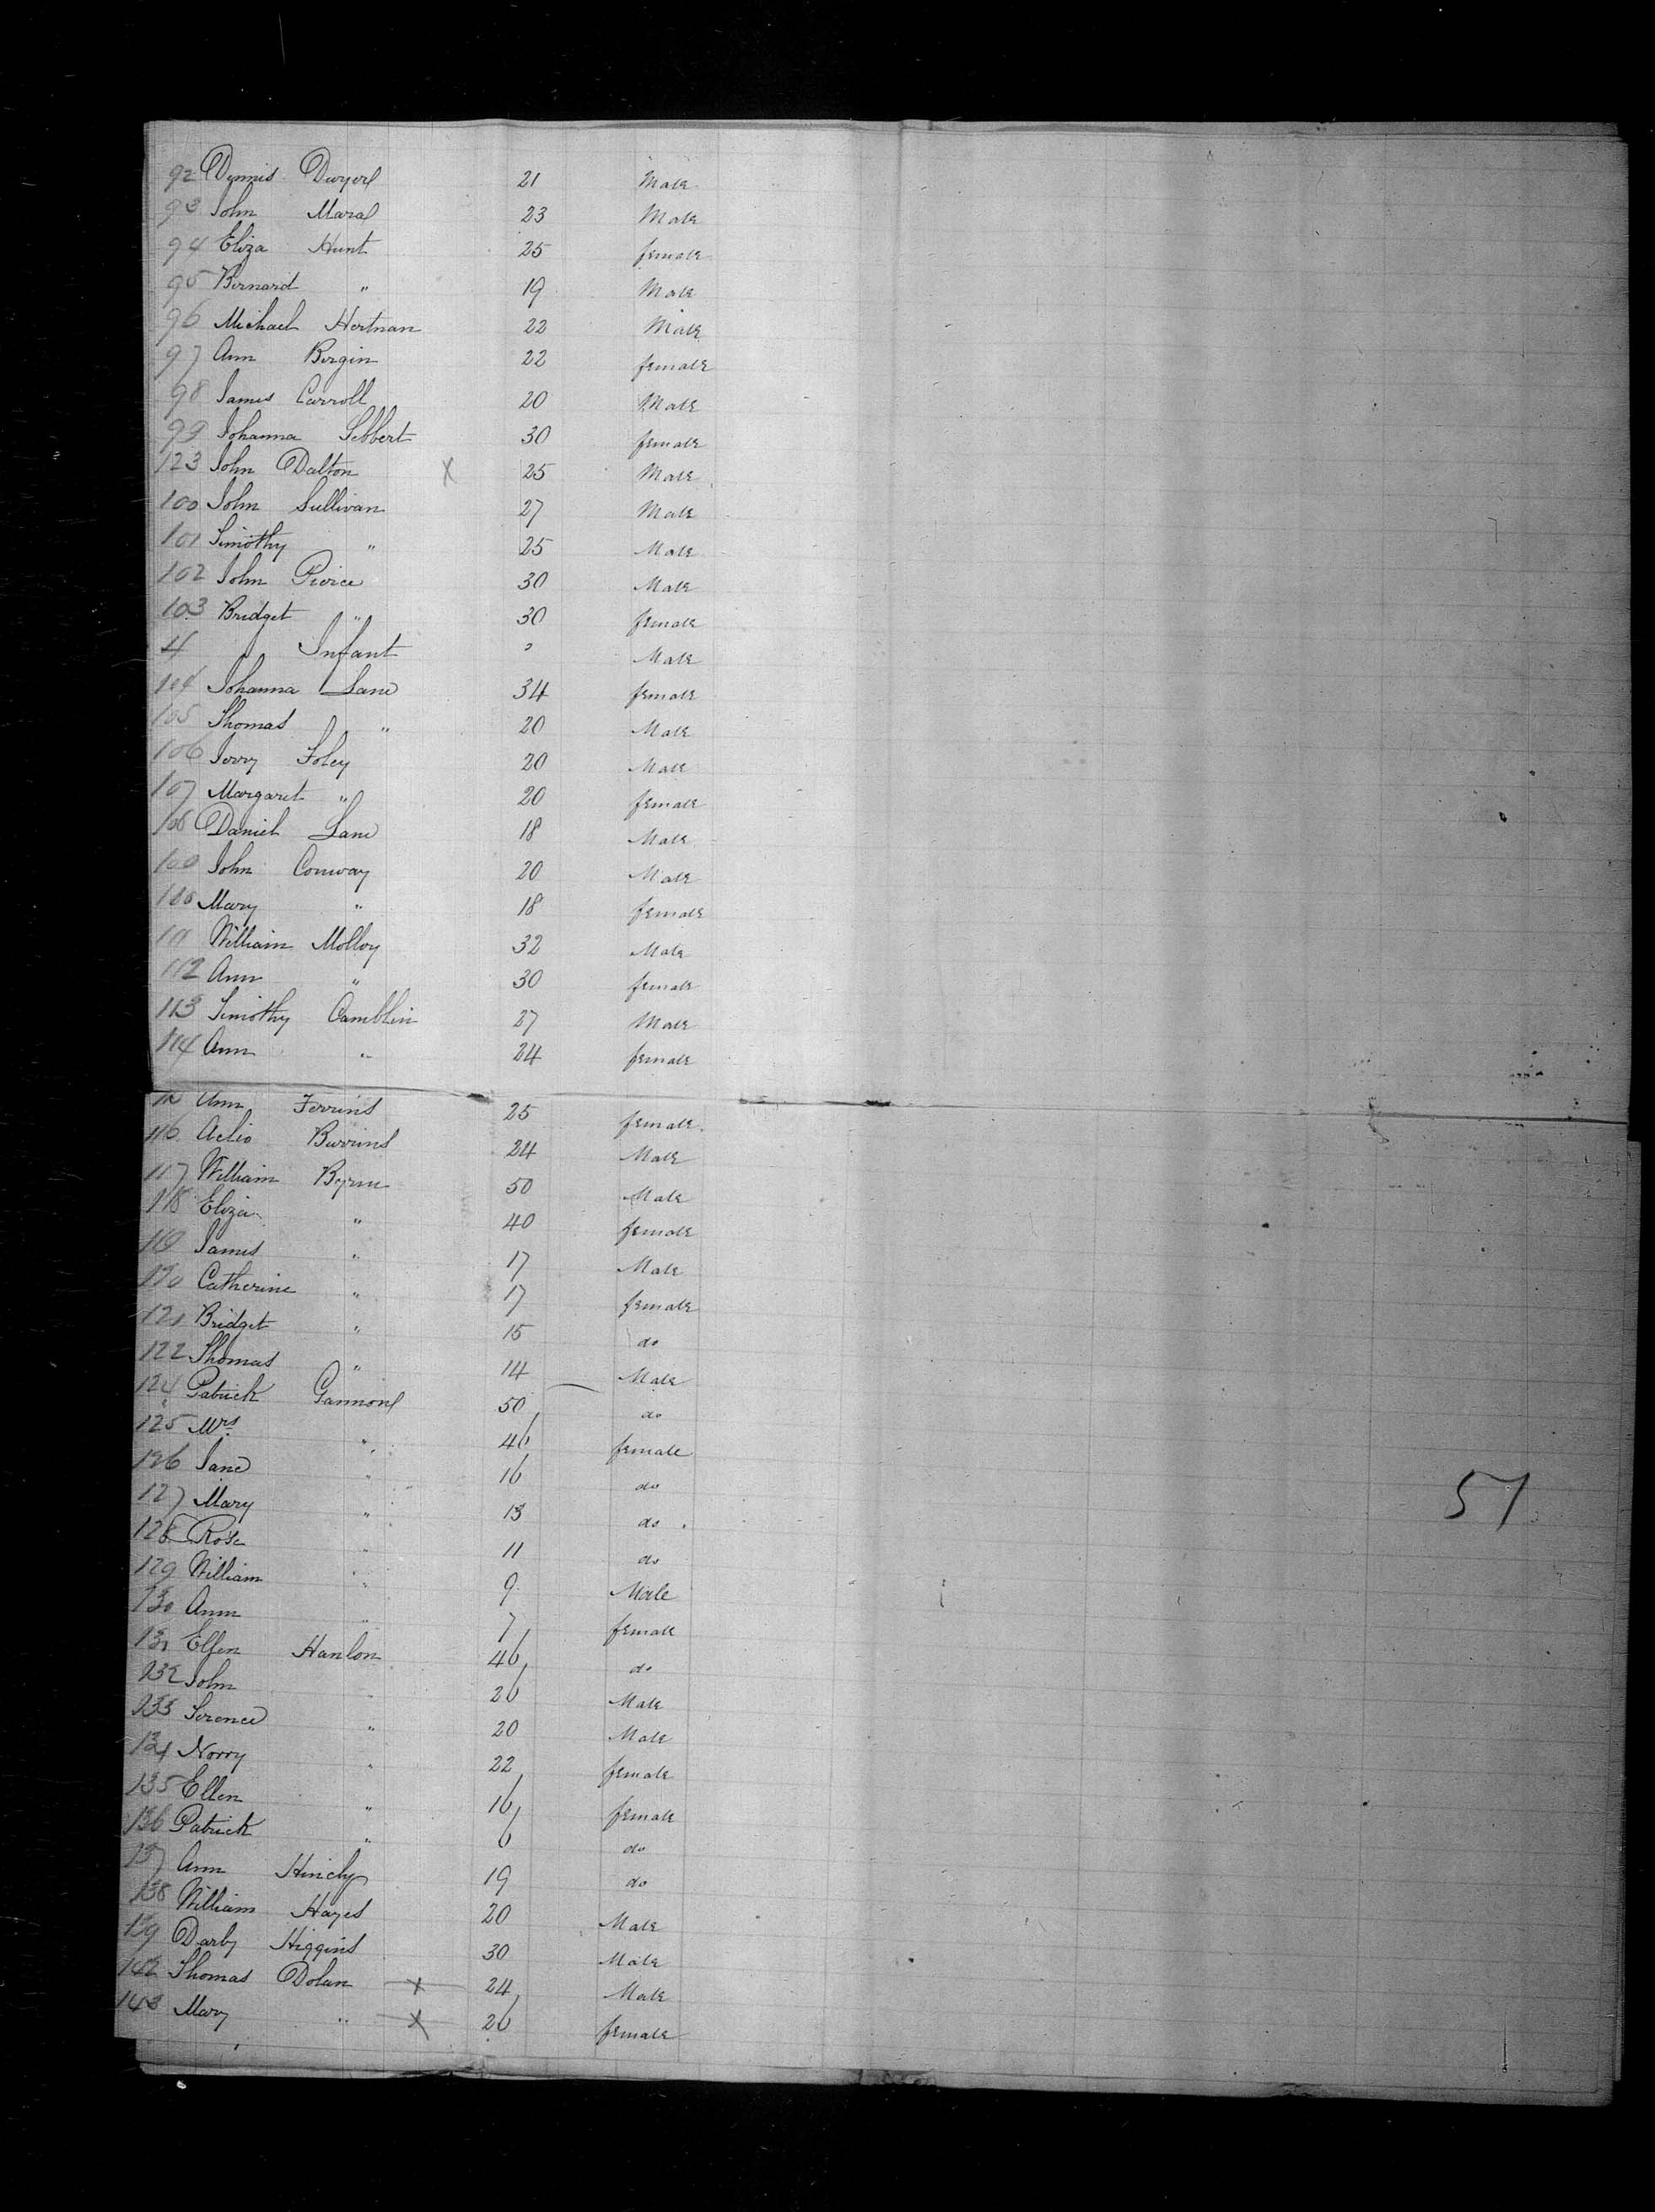 92 Dennis Dwyer 21 Male
93 John Mara 23 Male
94 Eliza Hunt 25 female
95 Bernard " 19 Male
96 Michael Hertnan 22 Male
97 Ann Bergin 22 female
98 James Carroll 20 Male
99 Johanna Sibbert 30 female
123 John Dalton X 25 Male
100 John Sullivan 27 Male
101 Timothy " 25 Male
102 John Pierce 30 Male
103 Bridget " 30 female
4 Infant " Male
104 Johanna Lane 34 female
105 Thomas " 20 Male
106 Jerry Foley 20 Male
107 Margaret " 20 female
108 Daniel Lane 18 Male
109 John Conway 20 Male
110 Mary " 18 female
111 William Molloy 32 Male
112 Ann " 30 female
113 Timothy Camblin 27 Male
114 Ann " 24 female
Ann Ferrins 25 female
116 Burrins 24 Male
117 William Byrne 50 Male
118 Eliza " 40 female
119 James " 17 Male
120 Catherine " 17 female
121 Bridget " 15 do
122 Thomas " 14 Male
124 Patrick Gannon 50 do
125 Mrs " 46 female
126 Jane " 16 do
127 Mary " 13 do
128 Rose " 11 do
129 William " 9 Male
130 Ann " 7 female
131 Ellen Hanlon 46 do
132 John " 26 Male
133 Terence " 20 Male
134 Norry " 22 female
135 Ellen " 16 female
136 Patrick " 6 do
137 Ann Hinchy 19 do
138 William Hayes 20 Male
139 Darby Higgins 30 Male
142 Thomas Dolan X 24 Male
143 Mary " X 26 female
51